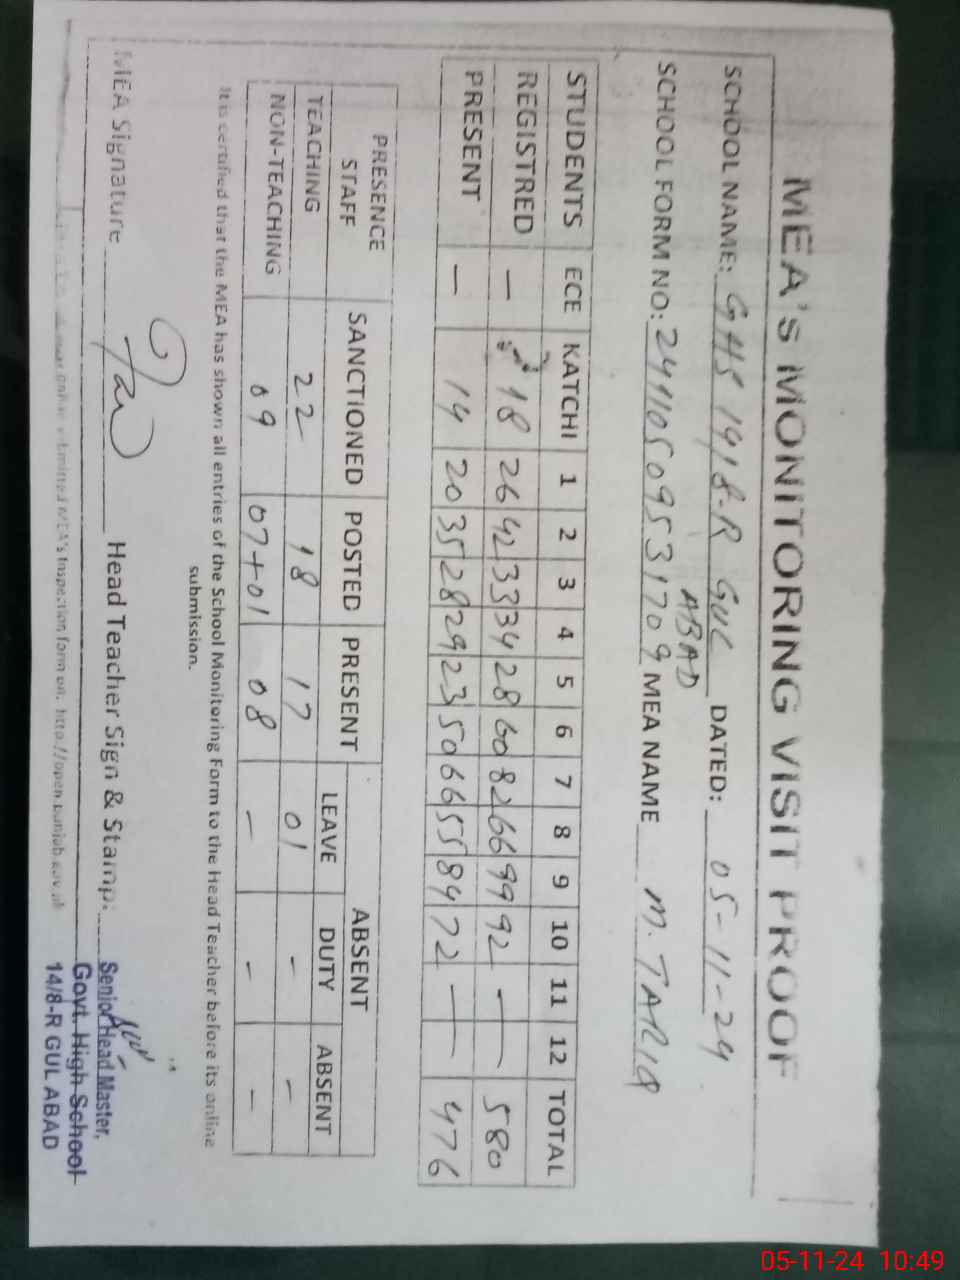 MEA'S MONITORING VISIT PROOF
SCHOOL NAME: GHS 14/8-R GUL ABAD DATED: 05-11-24
SCHOOL FORM NO: 24110509531709 MEA NAME M. TARIQ
STUDENTS ECE KATCHI 1 2 3 4 5 6 7 8 9 10 11 12 TOTAL
REGISTRED — 18 26 42 33 34 28 60 82 66 99 92 — — 580
PRESENT — 14 20 35 28 29 23 50 66 55 84 72 — — 476
PRESENCE STAFF SANCTIONED POSTED PRESENT ABSENT
LEAVE DUTY ABSENT
TEACHING 22 18 17 01 - -
NON-TEACHING 09 07+01 08 - - -
It is certified that the MEA has shown all entries of the School Monitoring Form to the Head Teacher before its online
submission.
MEA Signature Head Teacher Sign & Stamp:
Senior Head Master,
Govt. High School
14/8-R GUL ABAD
online submitted MEA's Inspection form on: http://open.punjab.gov.pk
05-11-24 10:49